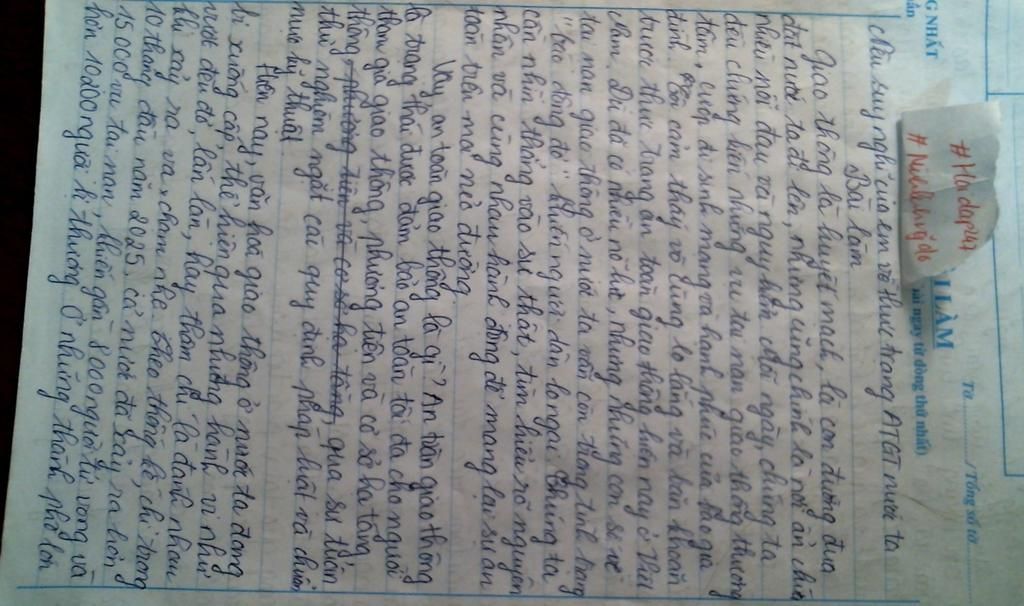 G NHẤT
#Hoidap24
#Ninhnhuy016
I LÀM
ngay từ dòng thứ nhất)
Tờ ........./Tổng số tờ.........
Nêu suy nghĩ của em về thực trạng ATGT nước ta
Bài làm
Giao thông là huyết mạch, là con đường đưa
đất nước ta đi lên, nhưng cũng chính là nơi ẩn chứa
nhiều nỗi đau và nguy hiểm. Mỗi ngày, chúng ta
đều chứng kiến những vụ tai nạn giao thông thương
tâm, cướp đi sinh mạng và hạnh phúc của bao gia
đình, em cảm thấy vô cùng lo lắng và băn khoăn
trước thực trạng an toàn giao thông hiện nay ở Việt
Nam. Dù đã có nhiều nỗ lực, nhưng những con số về
tai nạn giao thông ở nước ta vẫn còn trong tình trạng
"báo động đỏ" khiến người dân lo ngại. Chúng ta
cần nhìn thẳng vào sự thật, tìm hiểu rõ nguyên
nhân và cùng nhau hành động để mang lại sự an
toàn trên mọi nẻo đường.
Vậy an toàn giao thông là gì? An toàn giao thông
là trạng thái được đảm bảo an toàn tối đa cho người
tham gia giao thông, phương tiện và cơ sở hạ tầng
thông, phương tiện và cơ sở hạ tầng, qua sự tuân
thủ nghiêm ngặt các quy định pháp luật và chuẩn
mực kỹ thuật
Hiện nay, văn hoá giao thông ở nước ta đang
bị xuống cấp, thể hiện qua những hành vi như
vượt đèn đỏ, lấn làn, hay thậm chí là đánh nhau
khi xảy ra va chạm nhẹ. Theo thống kê, chỉ trong
10 tháng đầu năm 2025, cả nước đã xảy ra hơn
15.000 vụ tai nạn, khiến gần 8000 người tử vong và
hơn 10.000 người bị thương. Ở những thành phố lớn